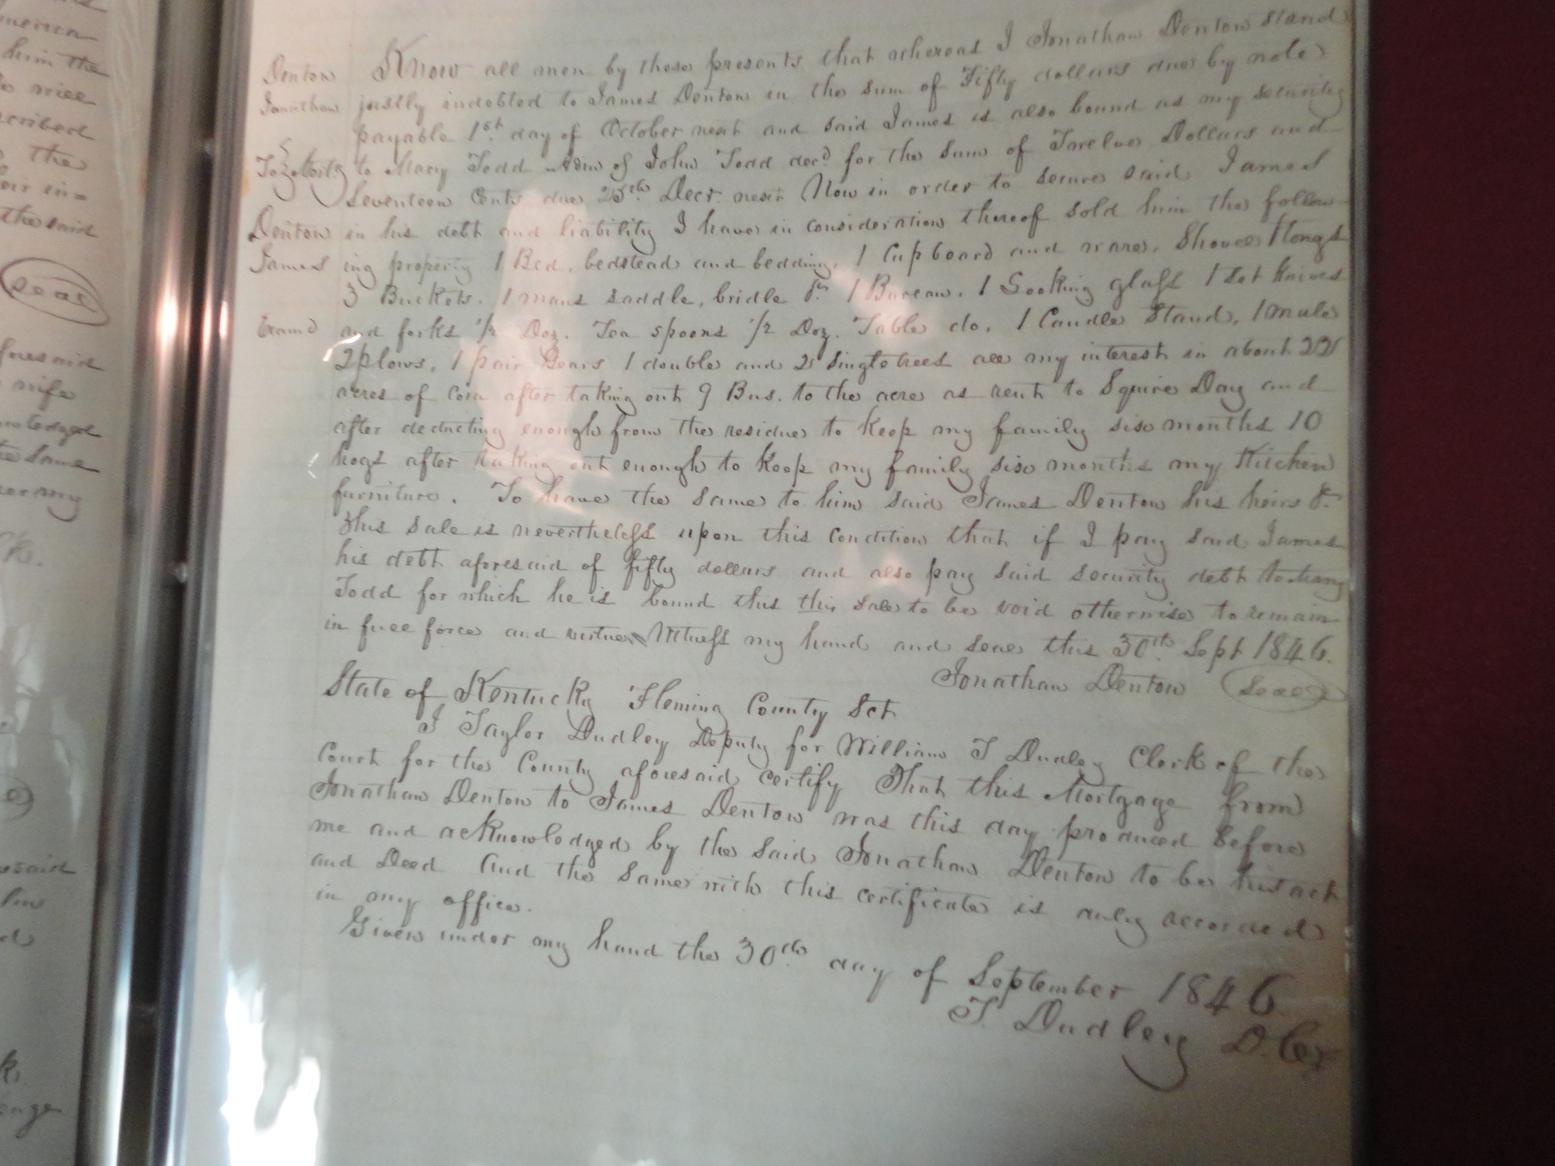 Denton Jonathan
To Mortg
Denton James
Exam<sup>d</sup>
Know all men by these presents that whereas I Jonathan Denton stand
justly indebted to James Denton in the sum of Fifty dollars due by note
payable 1st day of October next and said James is also bound as my security
to Mary Todd Adm of John Todd decd for the sum of Twelve Dollars and
Seventeen Cents due 25th Decr. next Now in order to secure said James
in his debt and liability I have in consideration thereof sold him the follow-
ing property 1 Bed, bedstead and bedding, 1 Cupboard and ware, Shovel & tongs
3 Buckets, 1 mans saddle, bridle &c 1 Bureau, 1 Looking glass 1 set knives
and forks 1/2 Doz. Tea spoons 1/2 Doz. Table do. 1 Candle Stand, 1 mule
2 plows, 1 pair Gears 1 double and 2 singletrees all my interest in about 22
acres of corn after taking out 9 Bus. to the acre as rent to Squire Day and
after deducting enough from the residue to keep my family six months 10
hogs after taking out enough to keep my family six months my Kitchen
furniture. To have the same to him said James Denton his heirs &c
This sale is nevertheless upon this condition that if I pay said James
his debt aforesaid of fifty dollars and also pay said security debt to Mary
Todd for which he is bound this this sale to be void otherwise to remain
in full force and virtue Witness my hand and seal this 30th Sept 1846.
Jonathan Denton Seal
State of Kentucky Fleming County Sct
I Taylor Dudley Deputy for William T Dudley Clerk of the
Court for the County aforesaid certify That this Mortgage from
Jonathan Denton to James Denton was this day produced before
me and acknowledged by the said Jonathan Denton to be his act
and Deed And the same with this certificate is duly recorded
in my office.
Given under my hand the 30th day of September 1846
T. Dudley D. Clk
merica
him the
scribed
the
eir in=
the said
seal
foresaid
wife
nowledged
the same
aforesaid